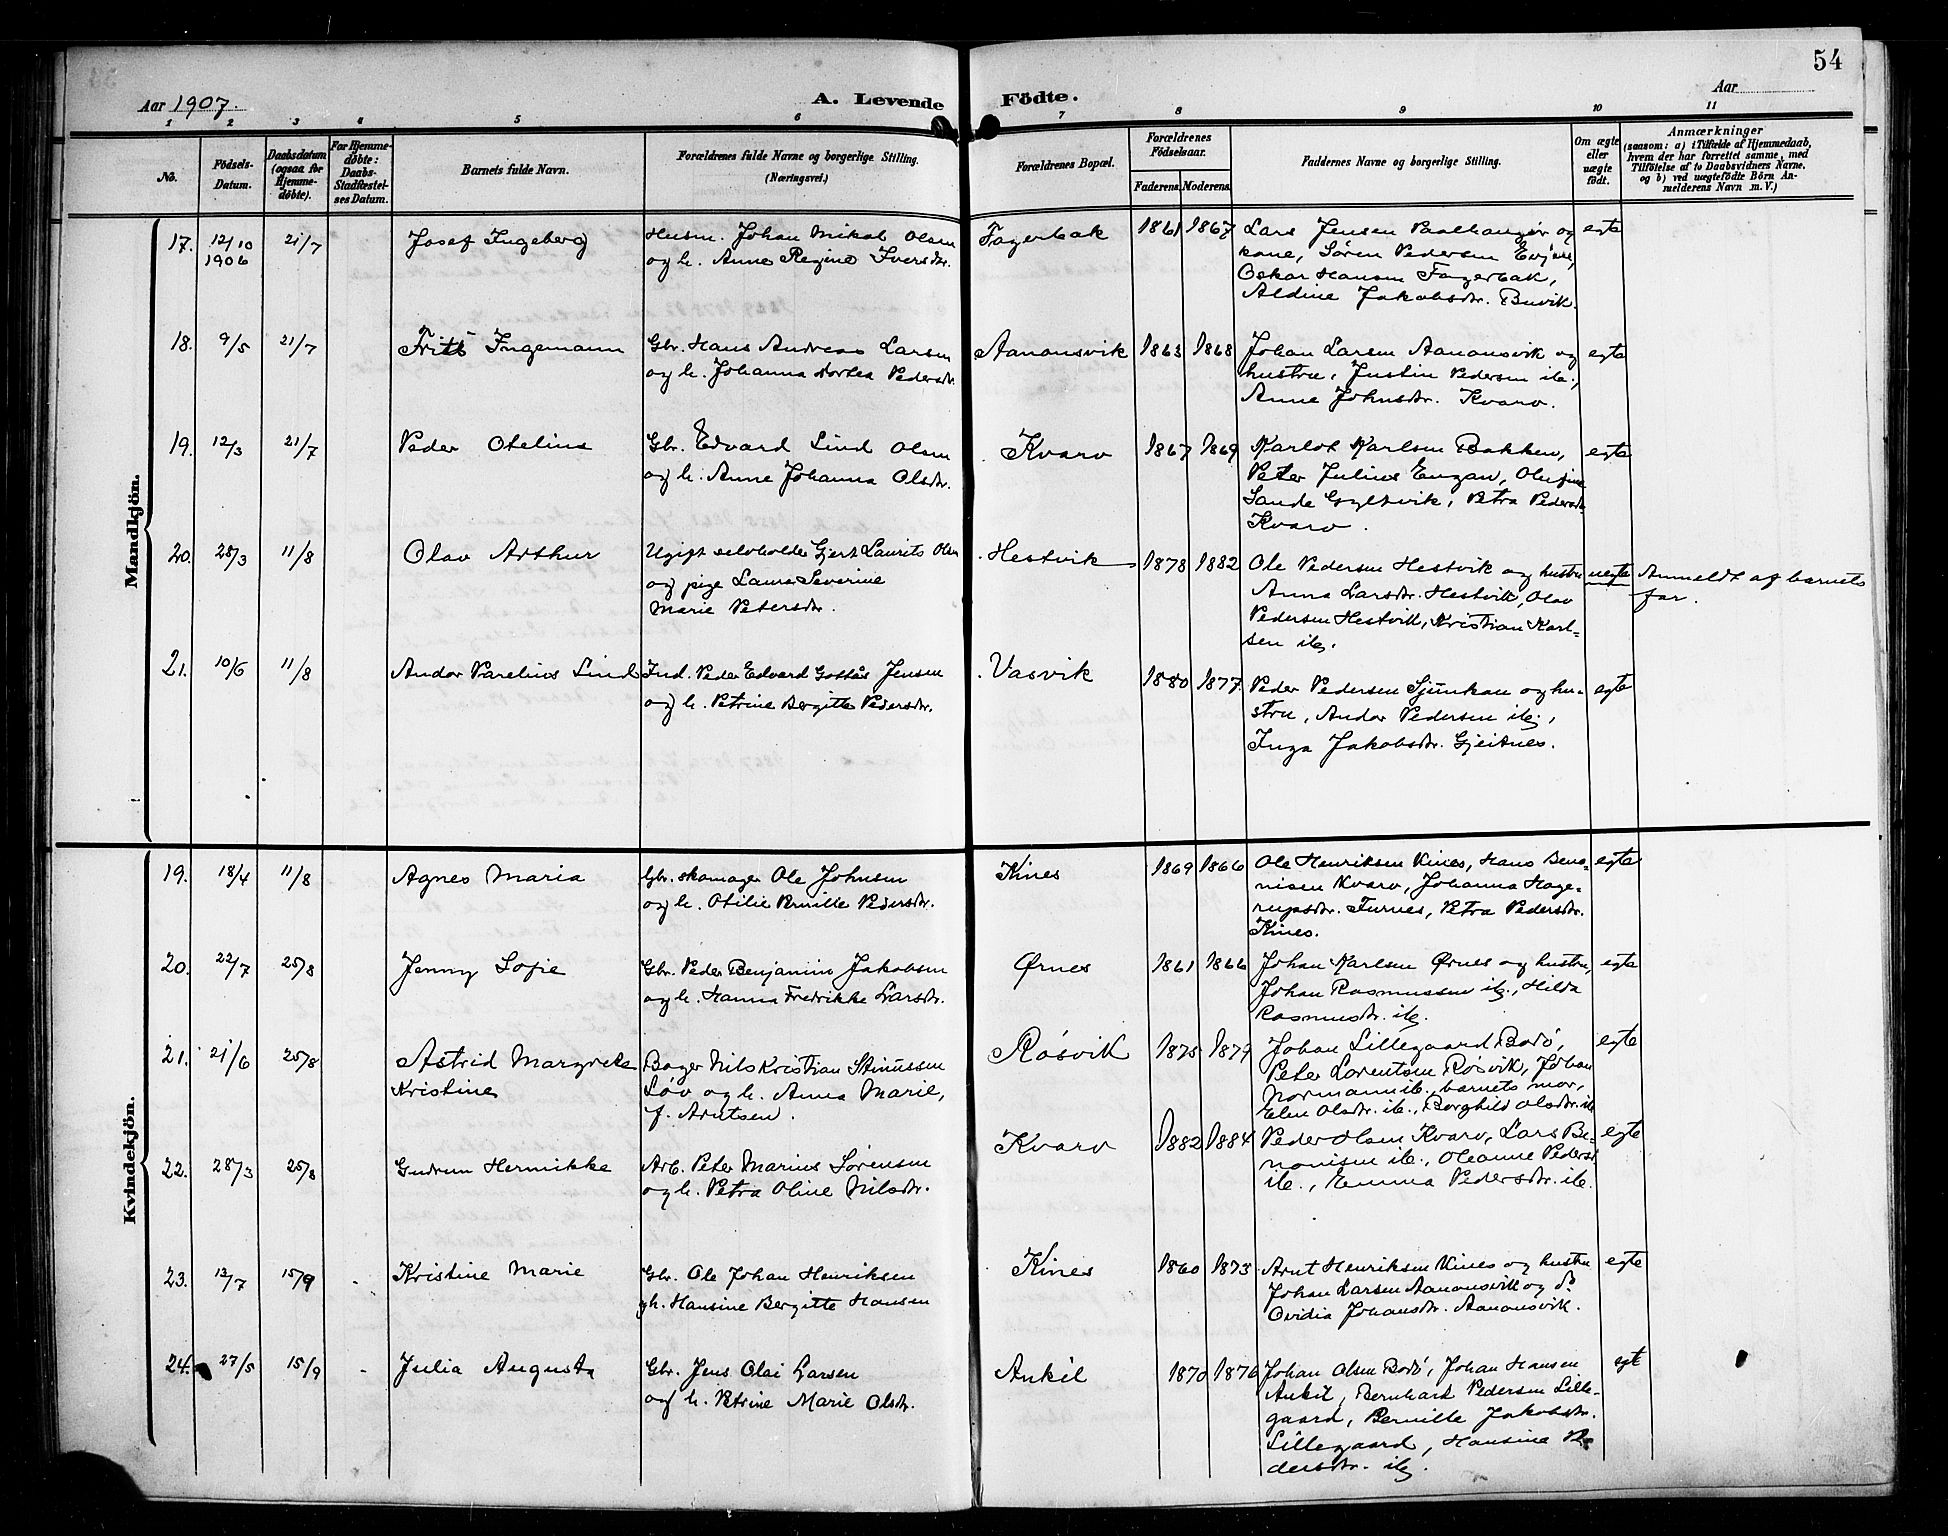 54
Aar 1907.
A. Levende Födte.
Aar
1 2 3 4 5 6 7 8 9 10 11
No.
Födsels-Datum.
Daabsdatum (ogsaa for Hjemme-döbte).
For Hjemme-döbte: Daabs-Stadfæstel-ses Datum.
Barnets fulde Navn.
Forældrenes fulde Navne og borgerlige Stilling. (Næringsvei.)
Forældrenes Bopæl.
Forældrenes Födselsaar.
Faderens. Moderens.
Faddernes Navne og borgerlige Stilling.
Om ægte eller uægte födt.
Anmærkninger
(saasom: a) i Tilfælde af Hjemmedaab, hvem der har forrettet samme, med Tilföielse af to Daabsvidners Navne. og b) ved uægtefödte Börn Anmelderens Navn m. V.)
Mandkjön.
17. 12/10 1906 21/7 Josef Ingeberg Husm. Johan Mikal Olsen
og h. Anne Regine Iversdtr.
Fagerbak 1861 1867 Lars Jensen og
kone, Søren Pedersen Evjen,
Oskar Hansen Fagerbak,
Aldine Jakobsdtr. Buvik.
egte
18. 9/5 21/7 Frits Ingemann Gbr. Hans Andreas Larsen
og h. Johanna Dortea Pedersdtr.
Aanonsvik 1863 1868 Johan Larsen Aanonsvik og
hustru, Justin Pedersen ib.,
Anne Johnsdtr. Kvarv.
egte
19. 12/3 21/7 Peder Otelius Gbr. Edvard Lind Olsen
og h. Anne Johanna Olsdtr.
Kvarv 1867 1869 Karlot Karlsen Bakken,
Peter Julius Engan, Olufine
Sande Gyltvik, Petra Pedersdtr.
Kvarv.
egte
20. 28/3 11/8 Olav Arthur Ugift selvholder Gjert Laurits Olsen
og pige Laura Severine
Marie Petersdtr.
Hestvik 1878 1882 Ole Pedersen Hestvik og hustru
Anna Larsdtr. Hestvik, Olav
Pedersen Hestvik, Kristian Karl-
sen ib.
uegte Anmeldt af barnets
far.
21. 10/6 11/8 Andor Parelius Lind Ind. Peder Edvard Gottås Jensen
og h. Petrine Bergitte Pedersdtr.
Vasvik 1880 1877 Peder Pedersen Sjunkan og hu-
stru, Andor Pedersen ib.,
Inga Jakobsdtr. Gjeitnes.
egte
Kvindekjön.
19. 18/4 11/8 Agnes Maria Gbr. skomager Ole Johnsen
og h. Otilie Pernille Pedersdtr.
Kines 1869 1866 Ole Henriksen Kines, Hans Beno-
nisen Kvarv, Johanna Hage-
rupsdtr. Furnes, Petra Pedersdtr.
Kines.
egte
20. 22/7 25/8 Jenny Sofie Gbr. Peder Benjamin Jakobsen
og h. Hanna Fredrikke Larsdtr.
Ørnes 1861 1866 Johan Karlsen Ørnes og hustru,
Johan Rasmussen ib., Hilda
Rasmusdtr. ib.
egte
21. 21/6 25/8 Astrid Margrete
Kristine
Bager Nils Kristian Stinussen
Løv og h. Anna Marie,
f. Arntsen.
Røsvik 1875 1879 Johan Lillegaard Bodø,
Peter Lorentsen Røsvik, Johan
Normann ib., barnets mor,
Elen Olsdtr. ib., Borghild Olsdtr. ib
egte
22. 28/3 25/8 Gudrun Hermikke Arb. Peter Marius Sørensen
og h. Petra Oline Nilsdtr.
Kvarv 1882 1884 Peder Olsen Kvarv, Lars Be-
nonisen ib., Oleanne Pedersd
ib., Emma Pedersdtr. ib.
egte
23. 13/7 15/9 Kristine Marie Gbr. Ole Johan Henriksen
gh. Hansine Bergitte Hansen
Kines 1860 1873 Arnt Henriksen Kines og hustru
Johan Larsen Aanonsvik og do.
Ovidia Johansdtr. Aanonsvik.
egte
24. 27/5 15/9 Julia Augusta Gbr. Jens Olai Larsen
og h. Petrine Marie Olsdtr.
Ankil 1870 1876 Johan Olsen Bodø, Johan Hansen
Ankil, Bernhard Pedersen Lille-
gaard, Bernille Jakobsdtr.
Lillegaard, Hansine Pe-
dersdtr. ib.
egte